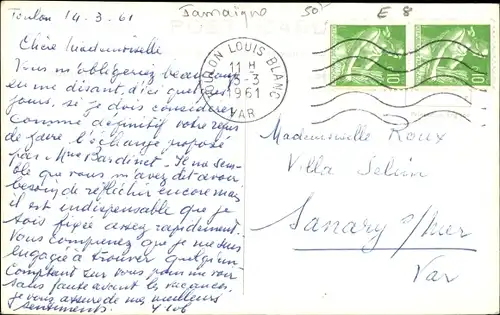 Toulon 14-3-61
Jamaïque
50f
E 8
Chère Mademoiselle
Vous m'obligeriez beaucoup
en me disant, d'ici quelques
jours, si je dois considérer
comme définitif votre refus
de faire l'échange proposé
par Mme Bardinet. Il me sem-
ble que vous m'avez dit avoir
besoin de réfléchir encore mais
il est indispensable que je
sois fixée assez rapidement.
Vous comprenez que je me suis
engagée à trouver quelqu'un.
Comptant sur vous pour me voir
sans faute avant les vacances,
je vous assure de mes meilleurs
sentiments.
TOULON LOUIS BLANC
11 H
15-3
1961
VAR
10
10
Mademoiselle Roux
Villa Selun
Sanary s/mer
Var